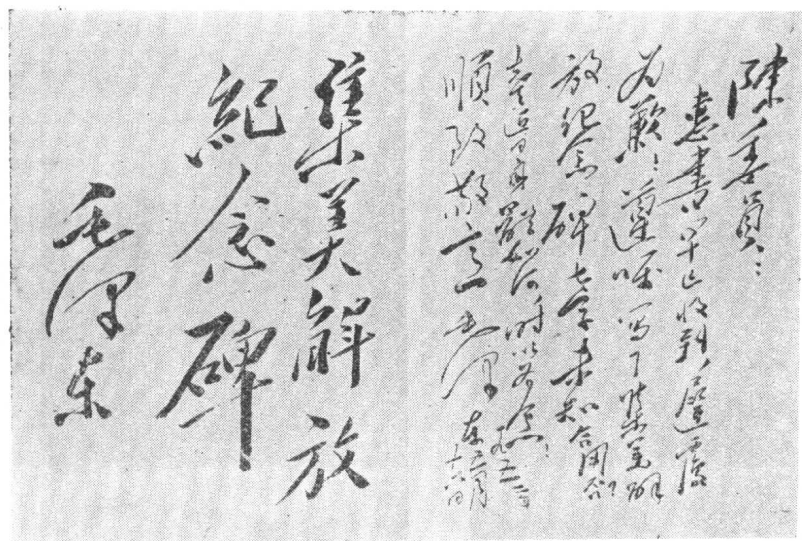 陳委員：
惠書早已收到，遲覆
为歉！遵嘱写了集美解
放纪念碑七字，未知合用否？
近日身體如何，时以为念！
順致敬意 毛泽东
五月
十六日
集美解放
紀念碑
毛泽东